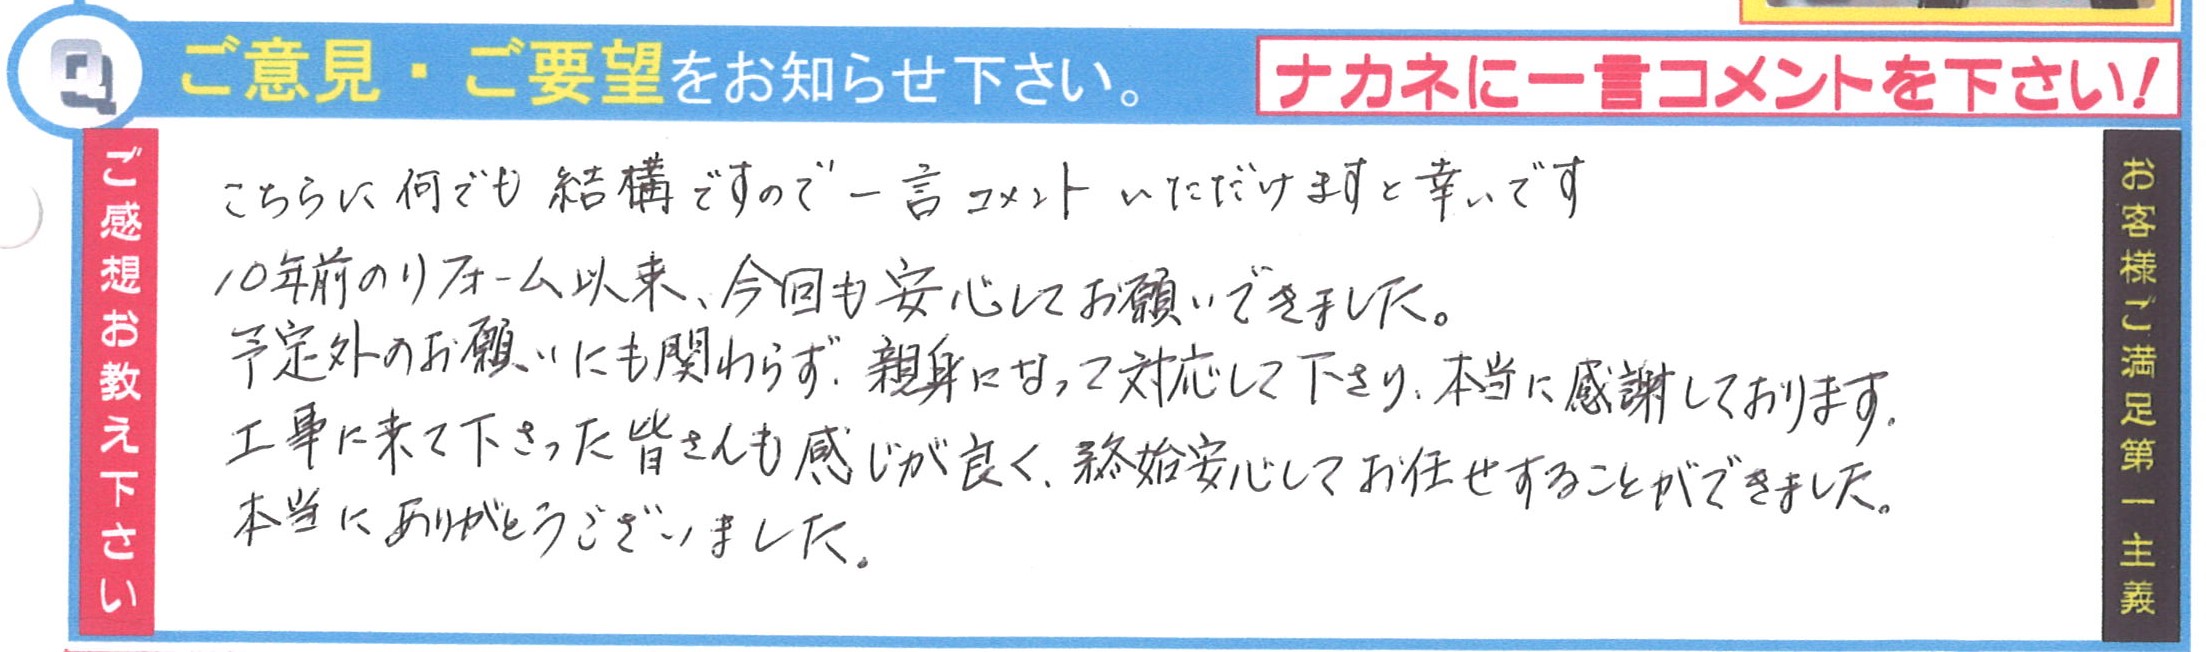 Q ご意見・ご要望をお知らせ下さい。 ナカネに一言コメントを下さい!
ご感想お教え下さい
こちらに何でも結構ですので一言コメントいただけますと幸いです
10年前のリフォーム以来、今回も安心してお願いできました。
予定外のお願いにも関わらず、親身になって対応して下さり、本当に感謝しております。
工事に来て下さった皆さんも感じが良く、終始安心してお任せすることができました。
本当にありがとうございました。
お客様ご満足第一主義